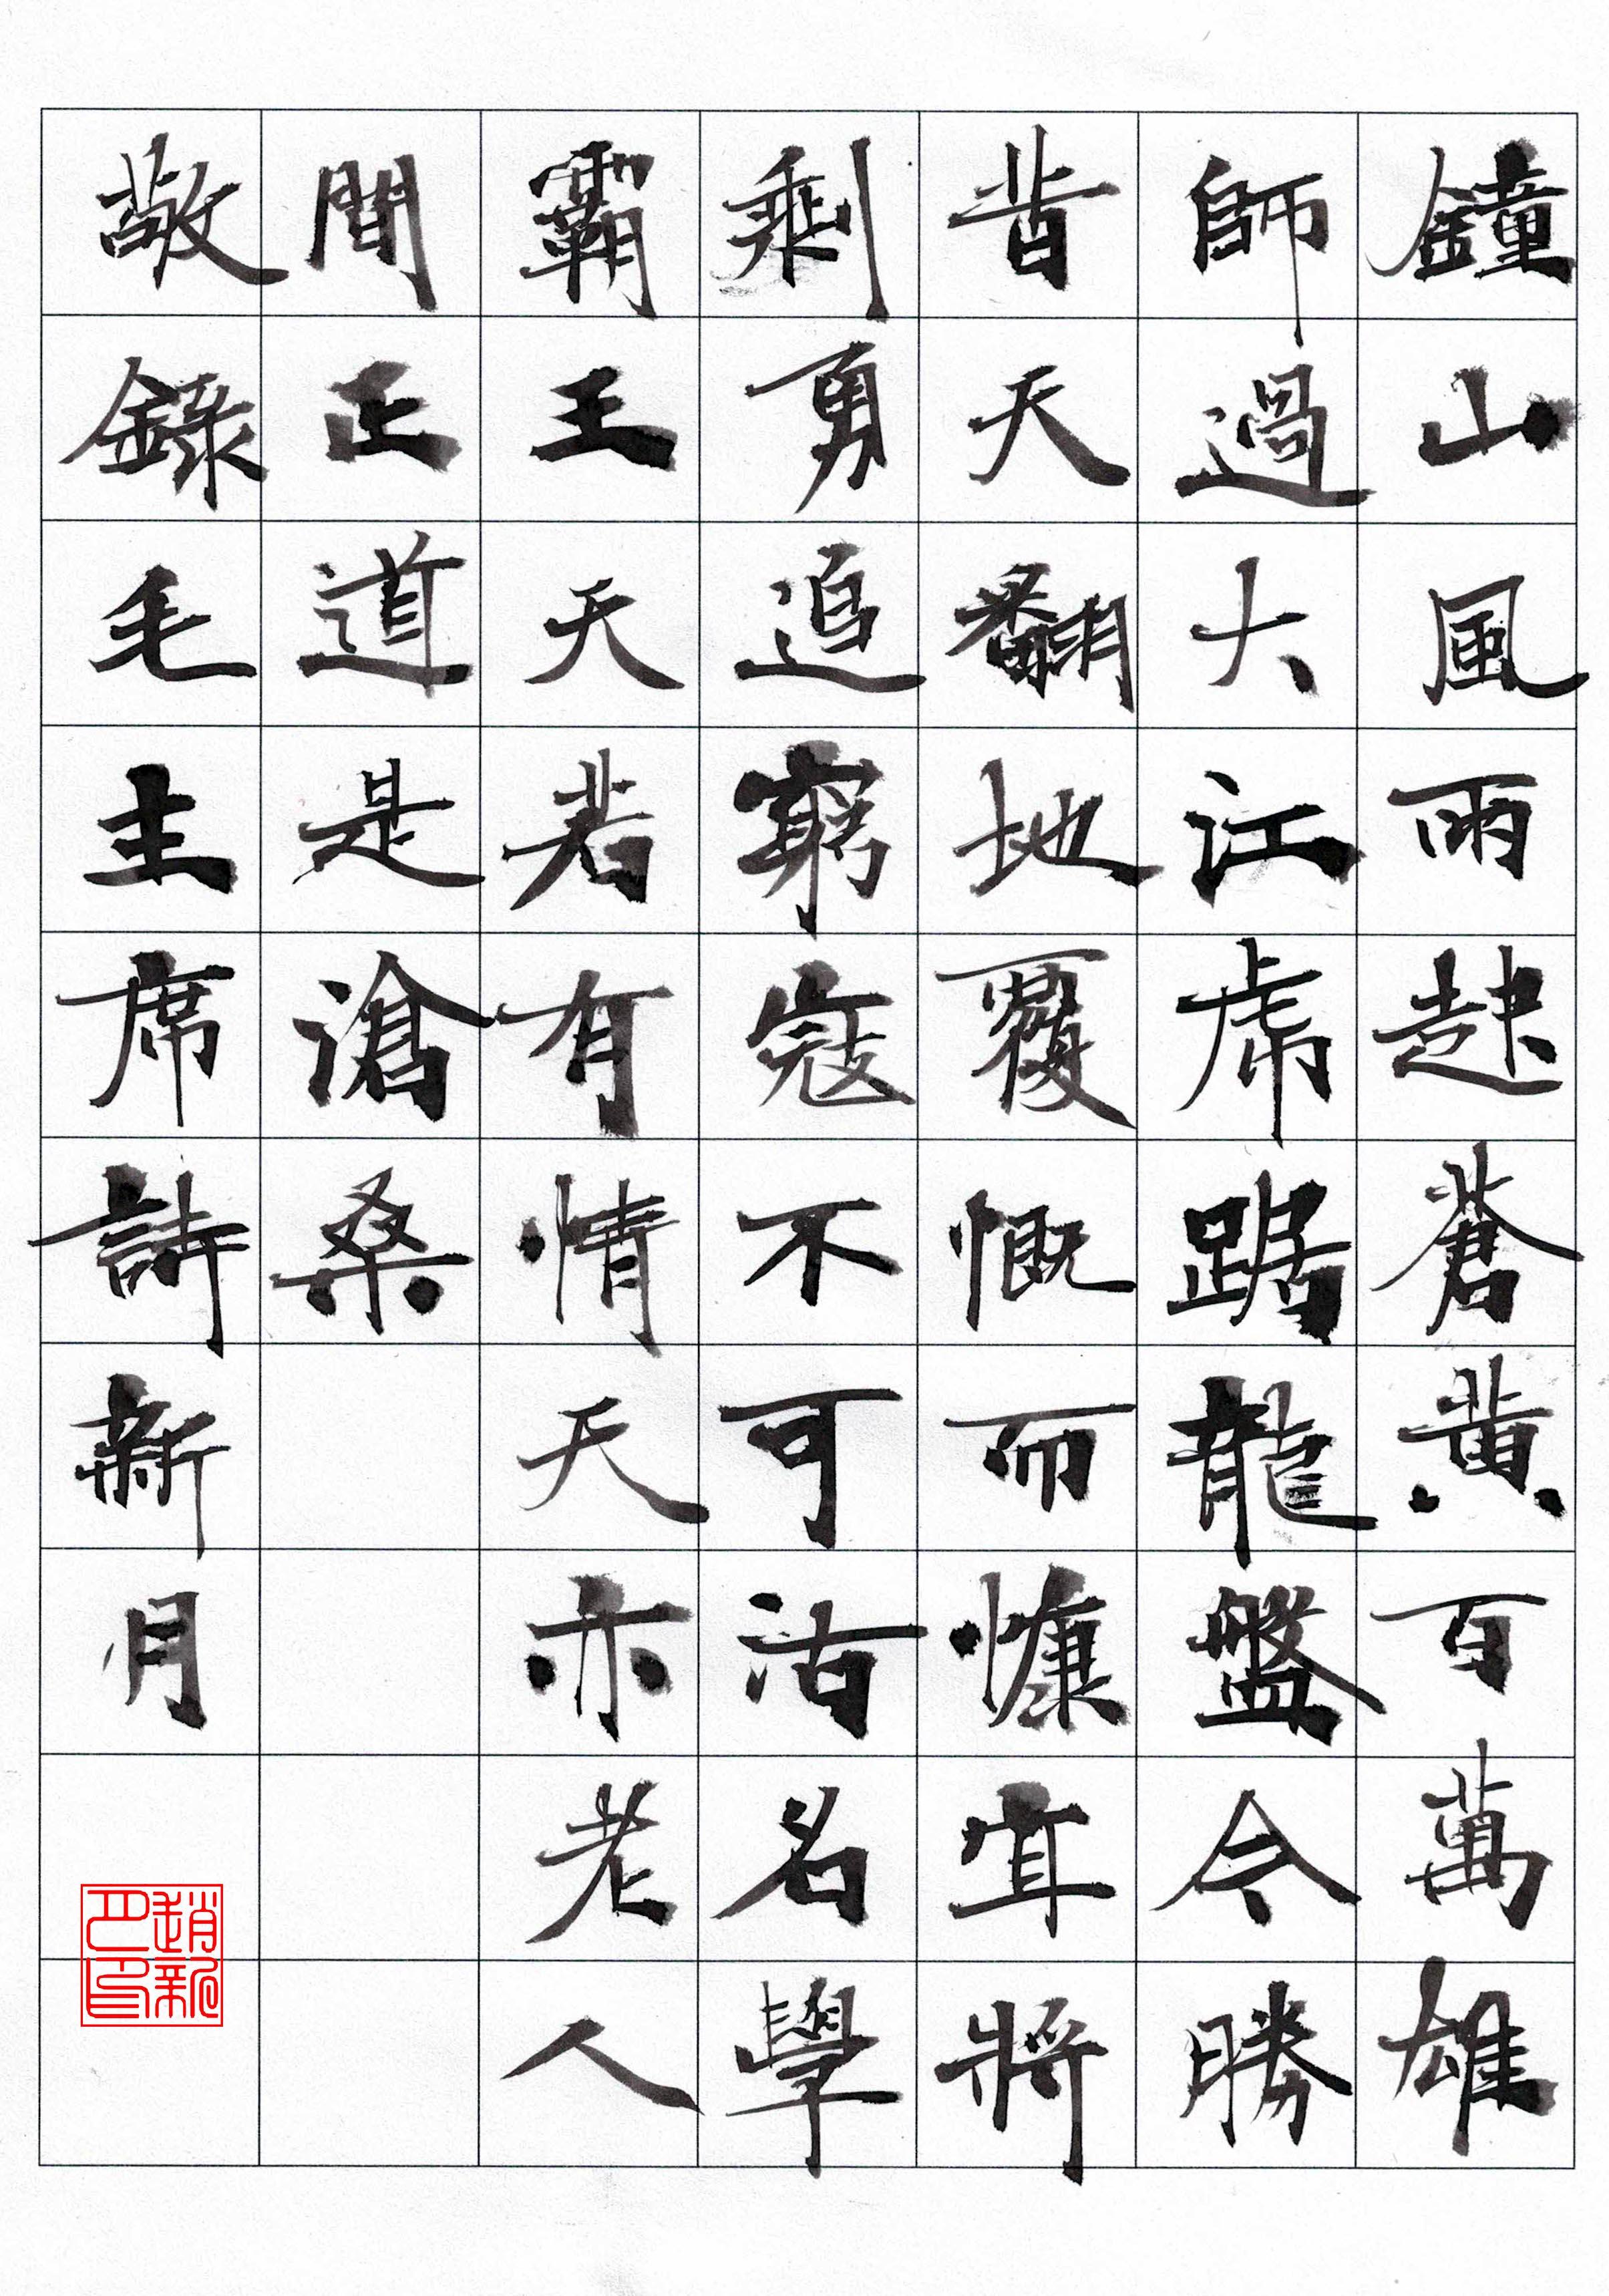 鐘山風雨起蒼黃百萬雄
師過大江虎踞龍盤今勝
昔天翻地覆慨而慷宜將
剩勇追窮寇不可沽名學
霸王天若有情天亦老人
間正道是滄桑
敬錄毛主席詩新月
趙新
月印